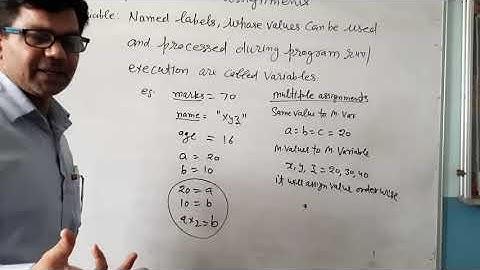 assignments
iable: Named labels, whose values can be used
and processed during program run/
execution are called variables.
eg. marks = 70
name = "xyz"
age = 16
a = 20
b = 10
20 = a
10 = b
a x 2 = b
multiple assignments
Same value to M. Var
a = b = c = 20
M. values to M. Variable
x, y, z = 20, 30, 40
it will assign value order wise